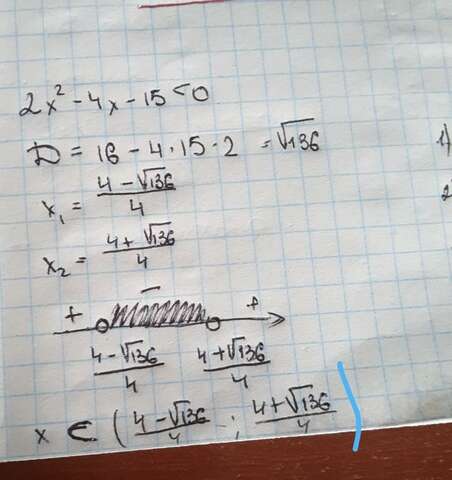 2x² - 4x - 15 < 0
D = 16 - 4 · 15 · 2 = √136
x₁ = (4 - √136)/4
x₂ = (4 + √136)/4
+ - +
(4 - √136)/4 (4 + √136)/4
x ∈ ((4 - √136)/4 ; (4 + √136)/4)
1)